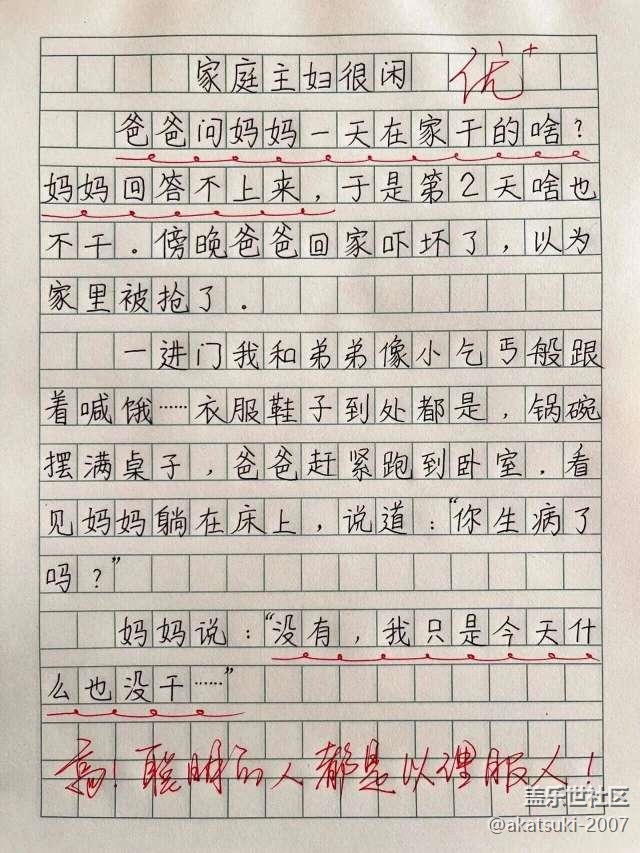 家庭主妇很闲 优+
爸爸问妈妈一天在家干的啥？
妈妈回答不上来，于是第2天啥也
不干．傍晚爸爸回家吓坏了，以为
家里被抢了．
一进门我和弟弟像小乞丐般跟
着喊饿……衣服鞋子到处都是，锅碗
摆满桌子，爸爸赶紧跑到卧室．看
见妈妈躺在床上，说道："你生病了
吗？"
妈妈说："没有，我只是今天什
么也没干……"
高！聪明的人都是以理服人！
盖乐世社区
@akatsuki-2007